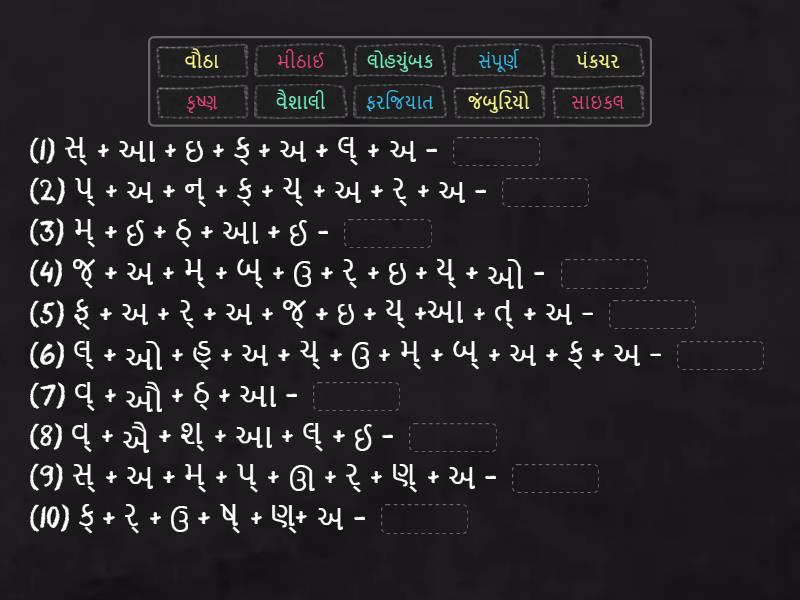 વૌઠા મીઠાઈ લોહચુંબક સંપૂર્ણ પંકચર
કૃષ્ણ વૈશાલી ફરજિયાત જંબુરિયો સાઇકલ
(1) સ્ + આ + ઇ + ક્ + અ + લ્ + અ -
(2) પ્ + અ + ન્ + ક્ + ચ્ + અ + ર્ + અ -
(3) મ્ + ઈ + ઠ્ + આ + ઈ -
(4) જ્ + અ + મ્ + બ્ + ઉ + ર્ + ઇ + ય્ + ઓ -
(5) ફ્ + અ + ર્ + અ + જ્ + ઇ + ય્ +આ + ત્ + અ -
(6) લ્ + ઓ + હ્ + અ + ચ્ + ઉ + મ્ + બ્ + અ + ક્ + અ -
(7) વ્ + ઔ + ઠ્ + આ -
(8) વ્ + ઐ + શ્ + આ + લ્ + ઈ -
(9) સ્ + અ + મ્ + પ્ + ઊ + ર્ + ણ્ + અ -
(10) ક્ + ર્ + ઉ + ષ્ + ણ્+ અ -